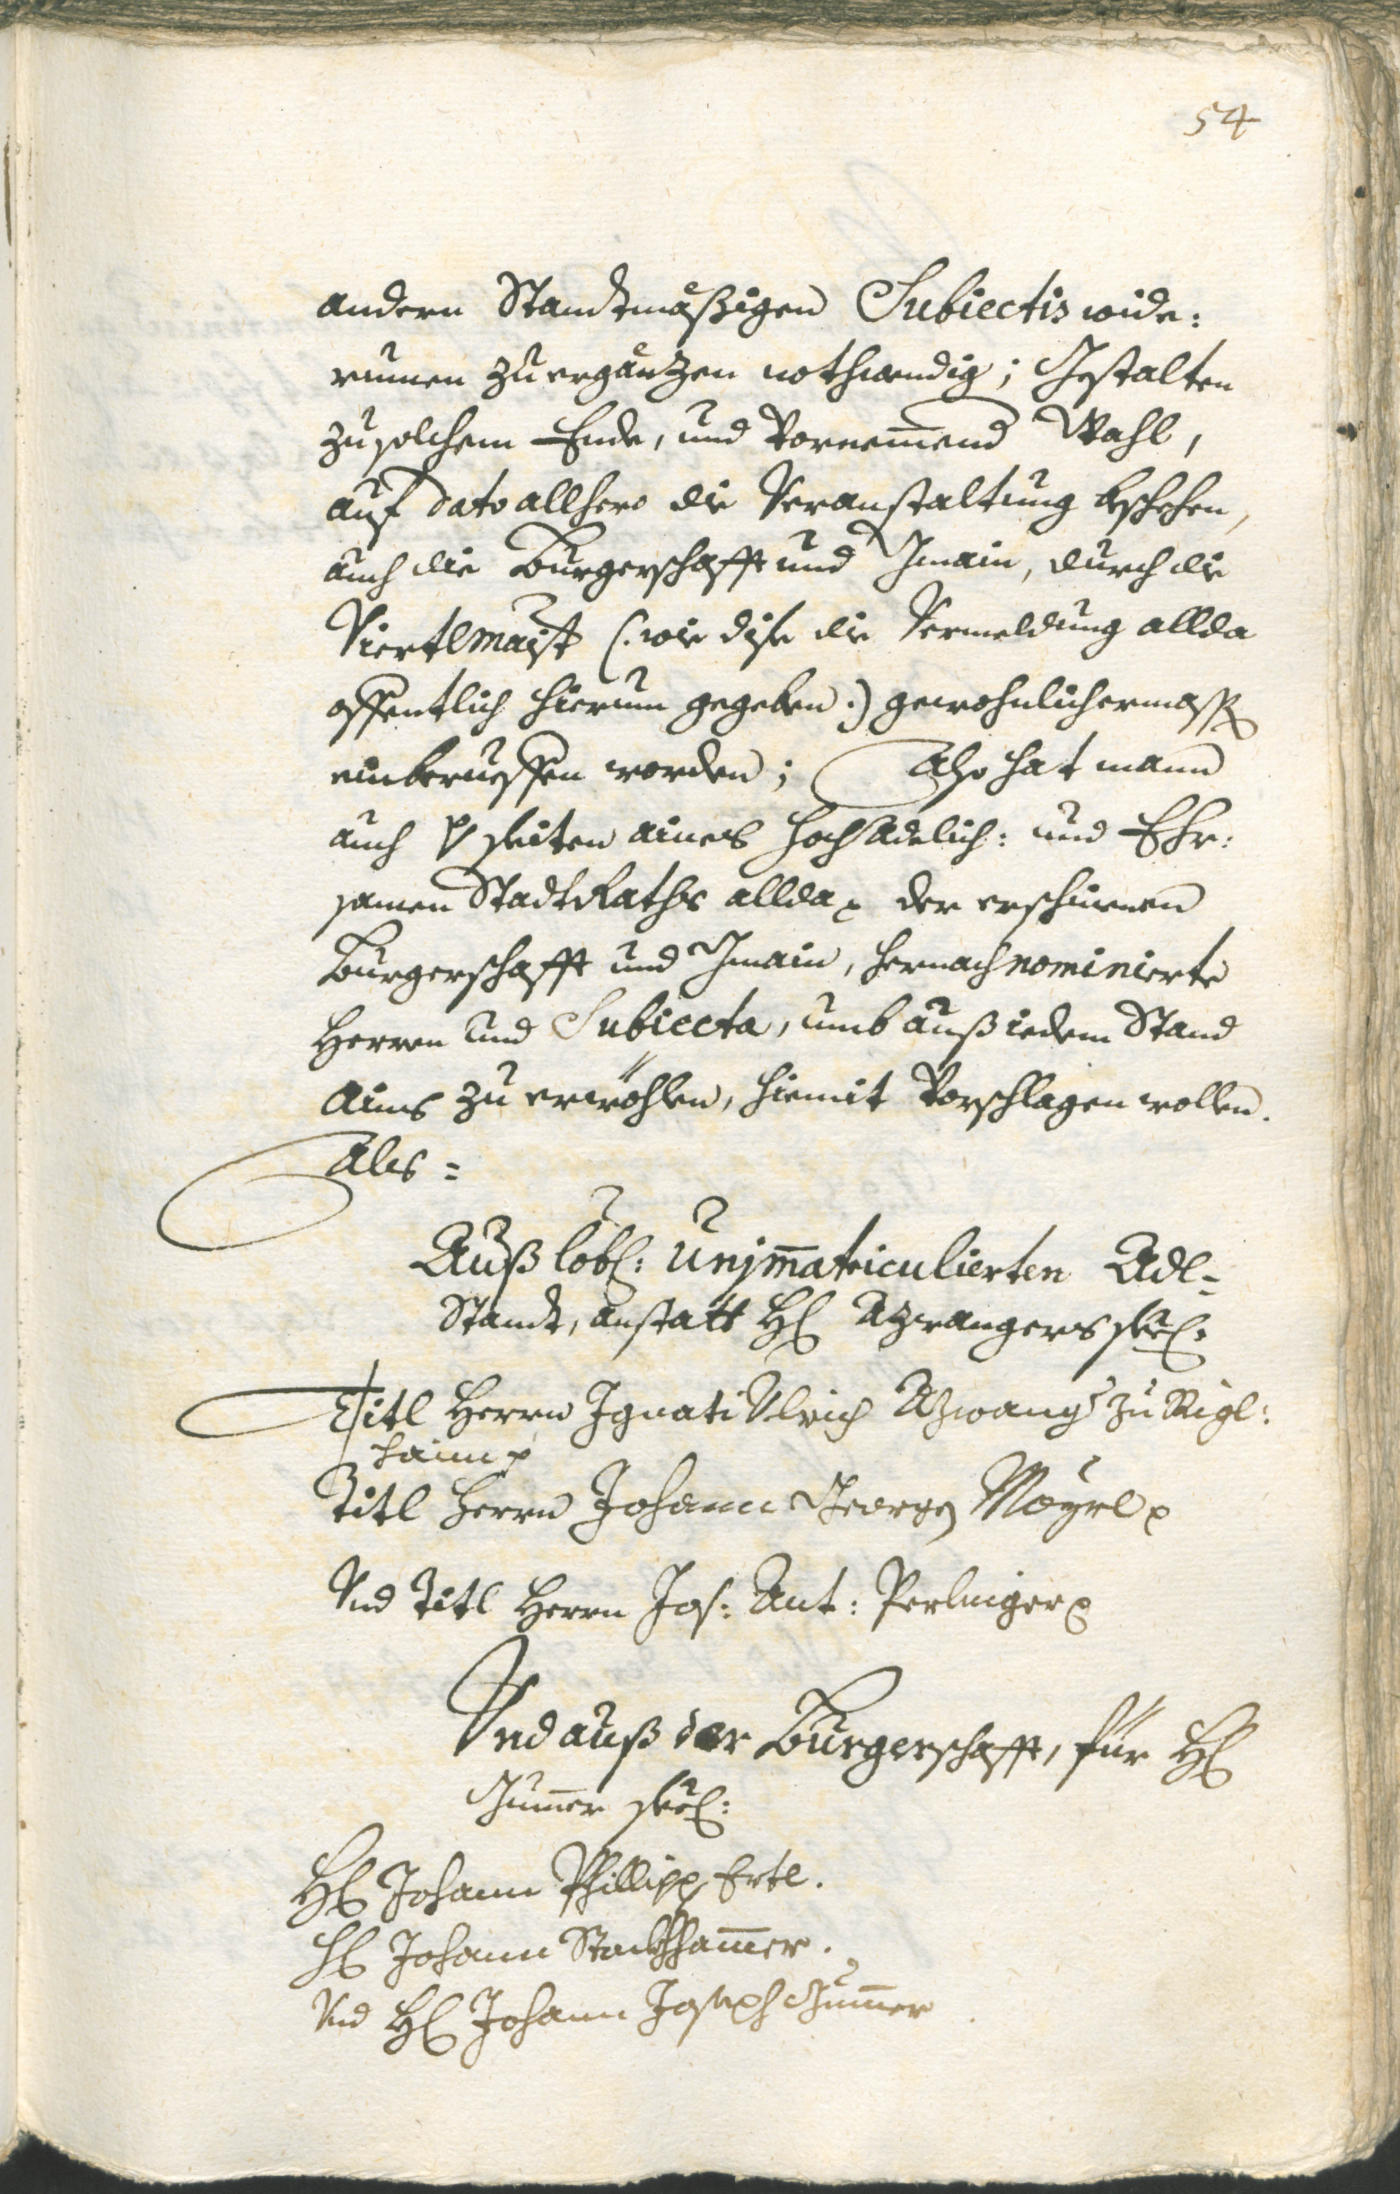 54
andern Standtmäßigen Subiectis wide:
rumen zu ergäntzen nothwendig; Gestalten
zu solchem Ende, und Vornemend Wahl,
auf dato allhero die Veranstaltung bschehen,
auch die Burgerschafft und Gmain, durch die
Viertlmaist (: wie dise die Vermeldung allda
offentlich hierum gegeben :) gewohnlichermass
einberueffen worden; Also hat mann
auch p seiten aines HochAdelich: und Ehr:
samen StadtRaths allda der erschinenen
Burgerschafft und Gmain, hernach nominierte
Herren und Subiecta, umb auß iedem Stand
Ains zu erwöhlen, hiemit Vorschlagen wollen.
Als =
Auß löbl: Unimatriculierten Adl=
Standt, anstatt H Azwangers seel:
Titl Herrn Ignati Ulrich Azwang zu Rigl:
haim
Titl Herrn Johann Georg Mayrl
Und Titl Herrn Jos: Ant: Perlinger
Und auß der Burgerschafft, für H
Gumer seel:
H Johann Phillipp Ertl.
H Johann Stockhhamer.
Und H Johann Joseph Gumer